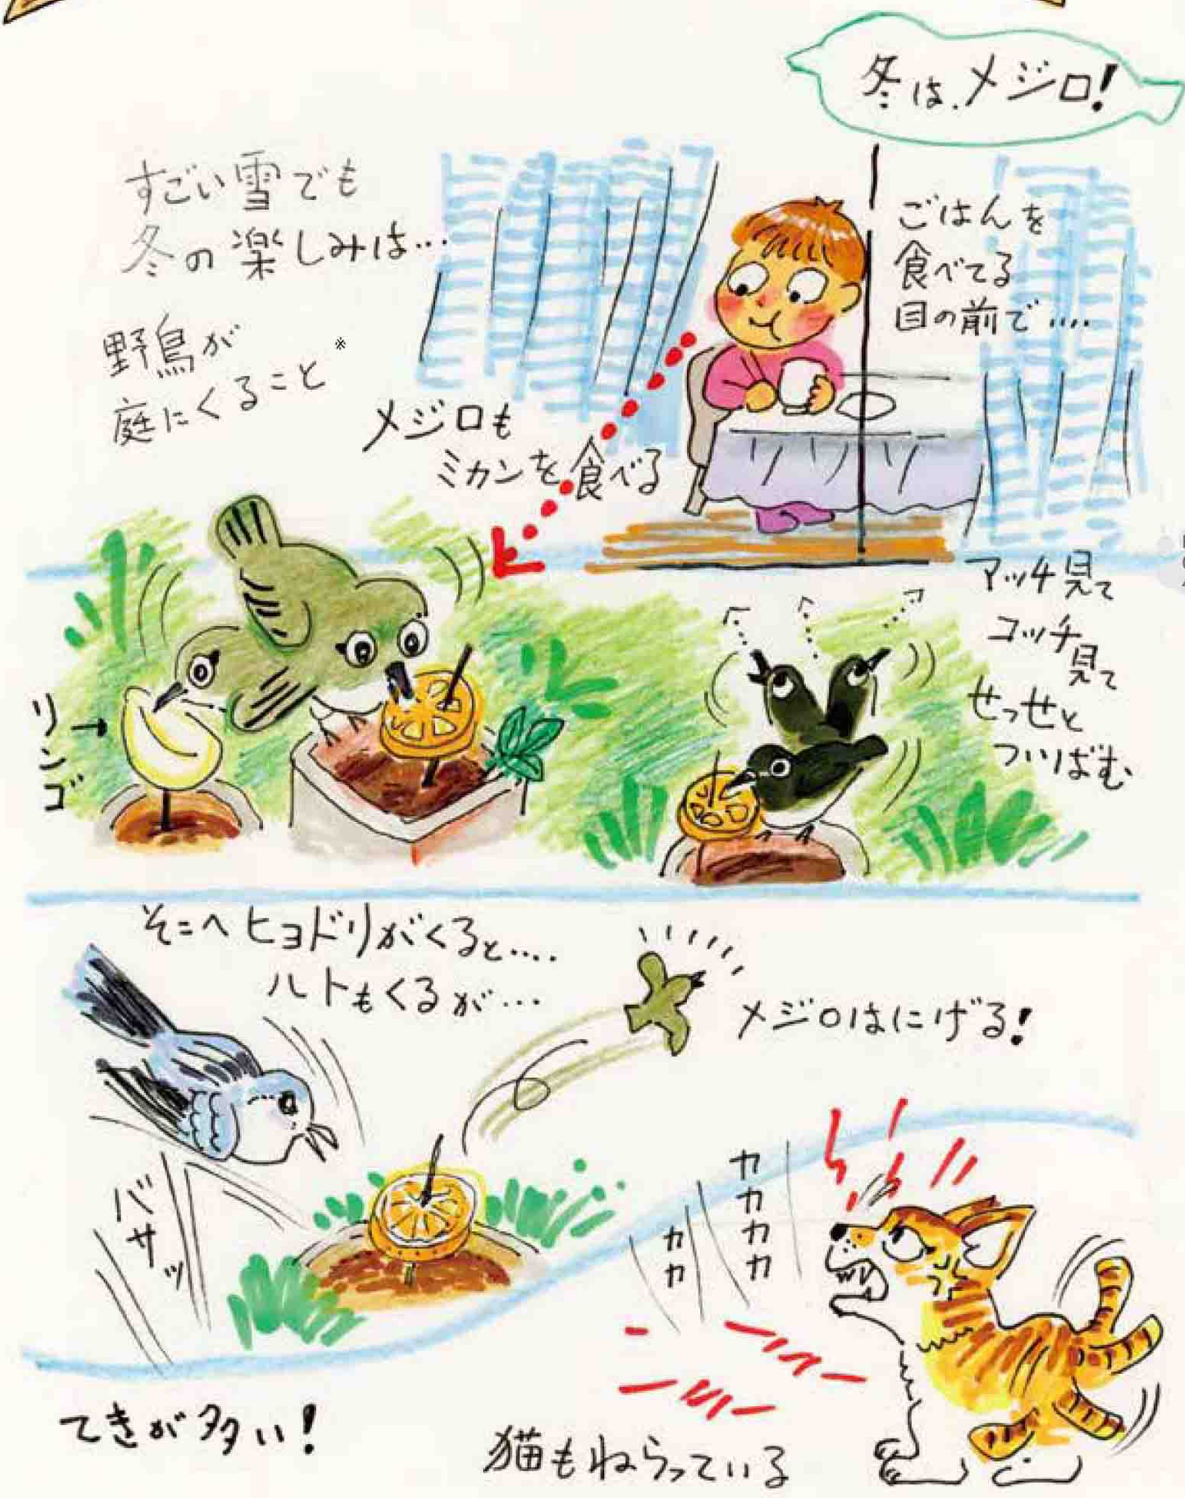 冬は、メジロ!
すごい雪でも
冬の楽しみは…
野鳥が
庭にくること※
ごはんを
食べてる
目の前で‥‥
メジロも
ミカンを食べる
リンゴ
アッチ見て
コッチ見て
せっせと
ついばむ
そこへヒヨドリがくると‥‥
ハトもくるが…
メジロはにげる!
バサッ
カカカカ
カカ
てきが多い!
猫もねらっている